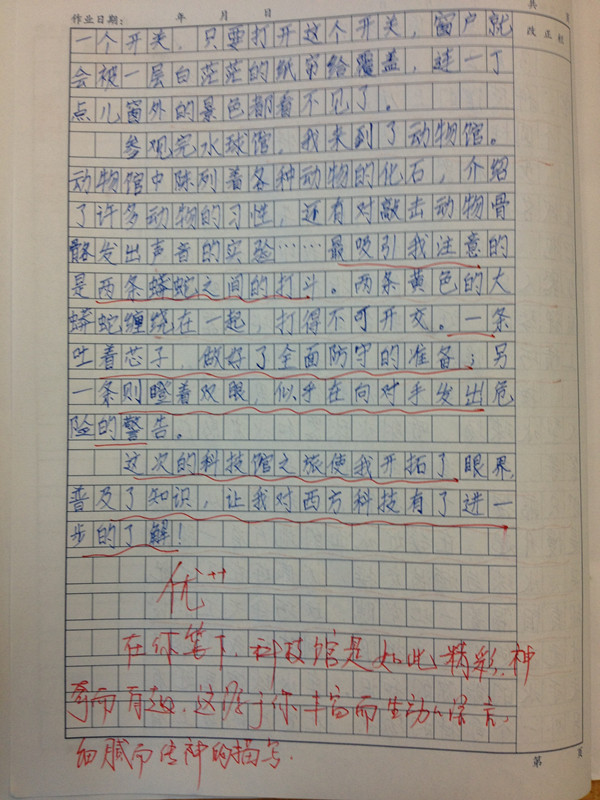 作业日期： 年 月 日
共 页
改正栏
一个开关，只要打开这个开关，窗户就
会被一层白茫茫的纸帘给覆盖，进一丁
点儿窗外的景色都看不见了。
参观完水球馆，我来到了动物馆。
动物馆中陈列着各种动物的化石，介绍
了许多动物的习性，还有对敲击动物骨
骼发出声音的实验……最吸引我注意的
是两条蟒蛇之间的打斗。两条黄色的大
蟒蛇缠绕在一起，打得不可开交。一条
吐着芯子，做好了全面防守的准备；另
一条则瞪着双眼，似乎在向对手发出危
险的警告。
这次的科技馆之旅使我开拓了眼界，
普及了知识，让我对西方科技有了进一
步的了解！
优++
在你笔下，科技馆是如此精彩，神
奇而有趣，这源于你丰富而生动的语言，
细腻而传神的描写。
第 页